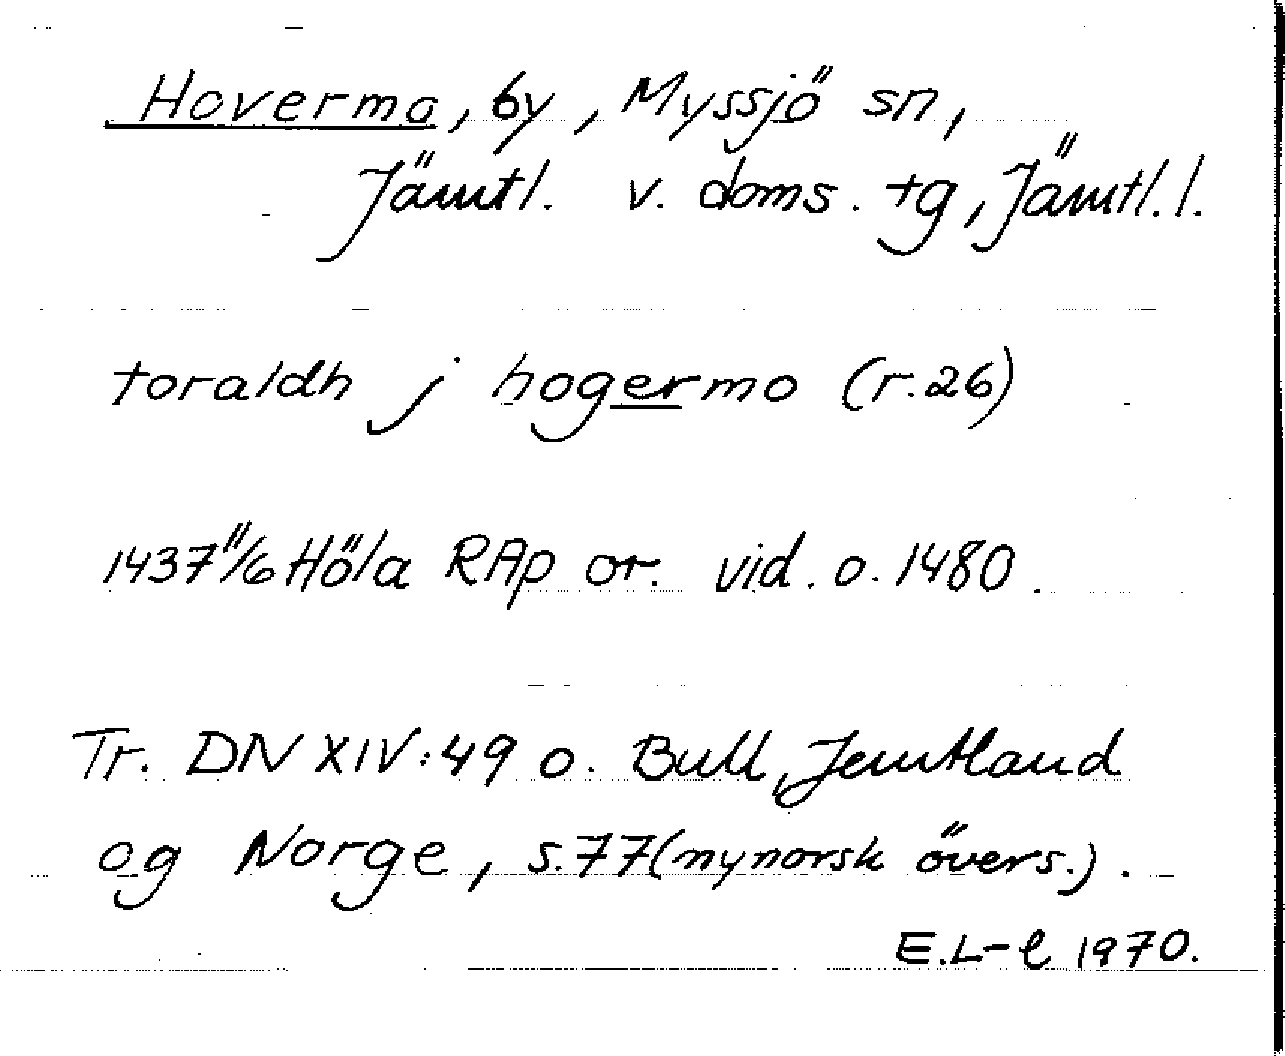 Hovermo, by, Myssjö sn,
Jämtl. v. doms. tg, Jämtl. l.
toraldh j hogermo (r. 26)
1437 11/6 Höla RAp or. vid. o. 1480.
Tr. DN XIV:49 o. Bull, Jemtland
og Norge, s. 77 (nynorsk övers.).
E.L-l 1970.